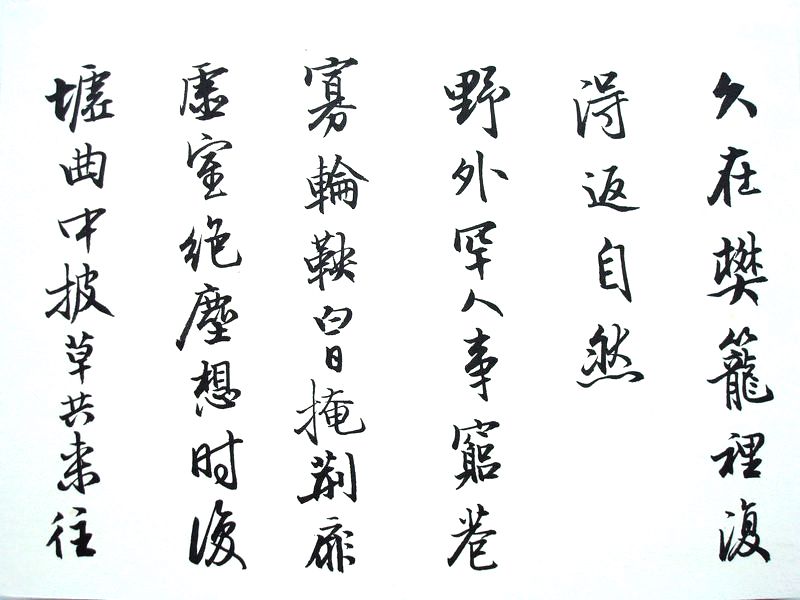 久在樊籠裡復
得返自然
野外罕人事窮巷
寡輪鞅白日掩荆扉
虛室絕塵想时復
墟曲中披草共来往